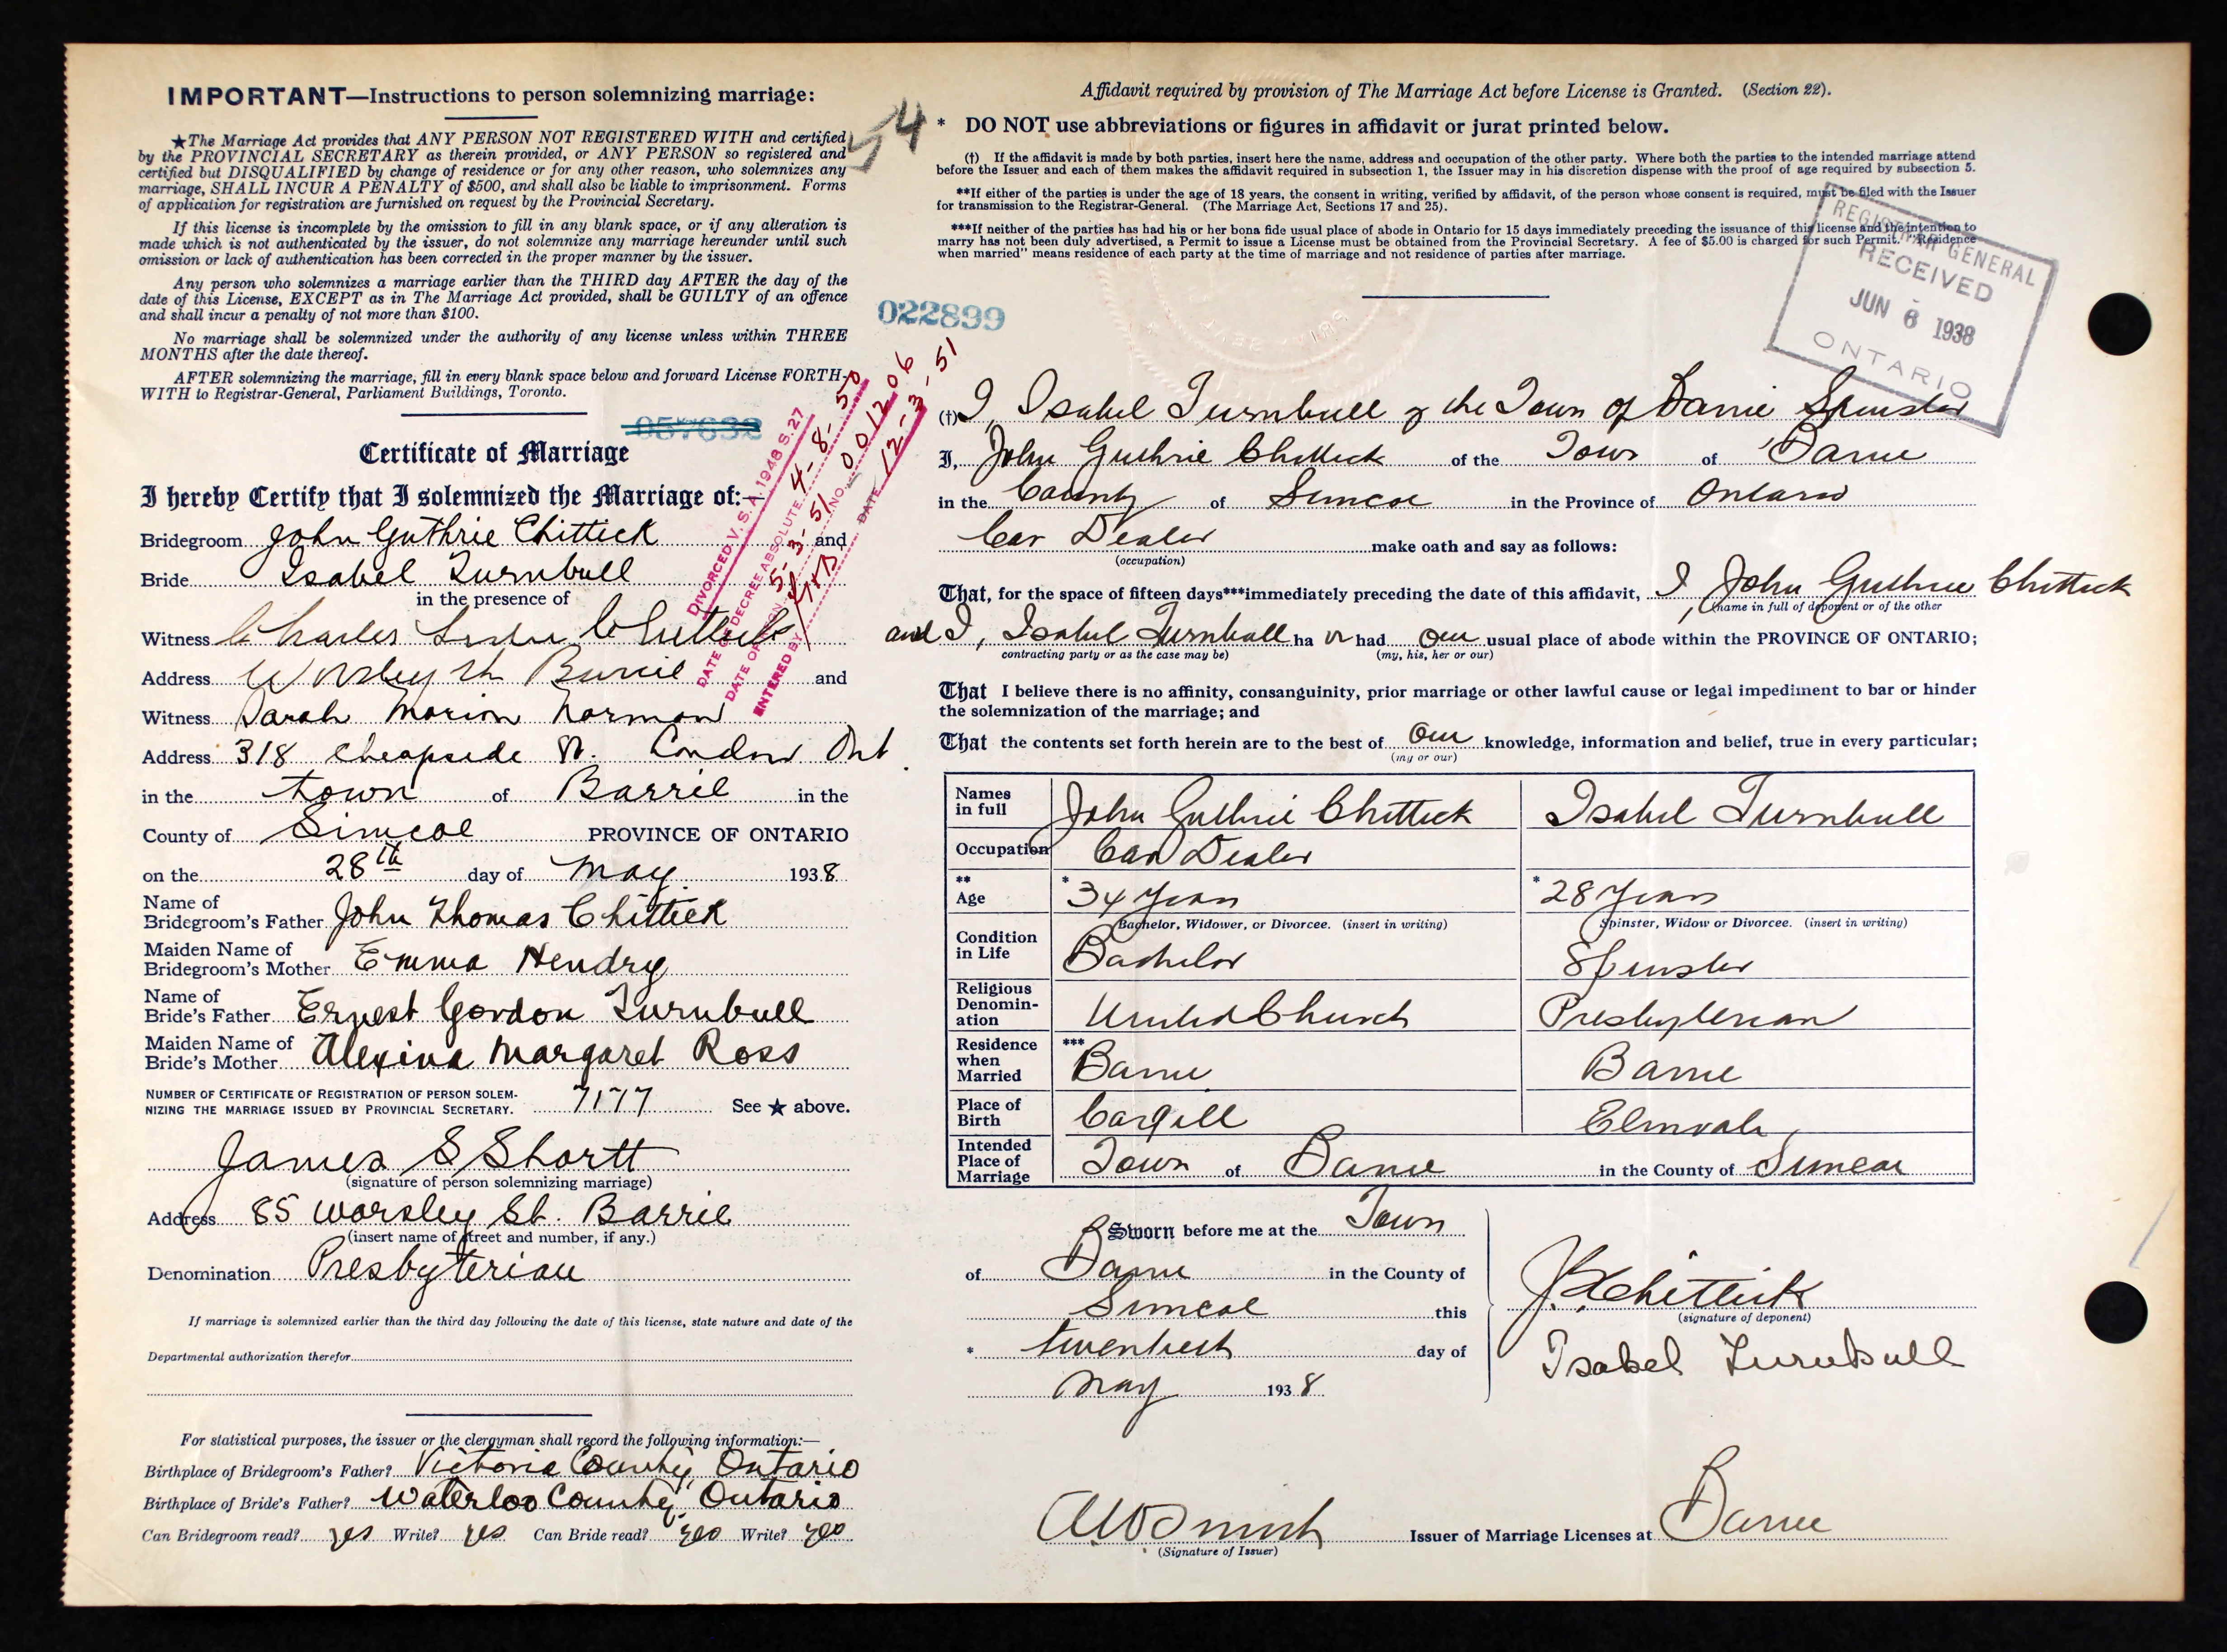 IMPORTANT—Instructions to person solemnizing marriage:
★The Marriage Act provides that ANY PERSON NOT REGISTERED WITH and certified
by the PROVINCIAL SECRETARY as therein provided, or ANY PERSON so registered and
certified but DISQUALIFIED by change of residence or for any other reason, who solemnizes any
marriage, SHALL INCUR A PENALTY of $500, and shall also be liable to imprisonment. Forms
of application for registration are furnished on request by the Provincial Secretary.
If this license is incomplete by the omission to fill in any blank space, or if any alteration is
made which is not authenticated by the issuer, do not solemnize any marriage hereunder until such
omission or lack of authentication has been corrected in the proper manner by the issuer.
Any person who solemnizes a marriage earlier than the THIRD day AFTER the day of the
date of this License, EXCEPT as in The Marriage Act provided, shall be GUILTY of an offence
and shall incur a penalty of not more than $100.
No marriage shall be solemnized under the authority of any license unless within THREE
MONTHS after the date thereof.
AFTER solemnizing the marriage, fill in every blank space below and forward License FORTH-
WITH to Registrar-General, Parliament Buildings, Toronto.
057632
Certificate of Marriage
I hereby Certify that I solemnized the Marriage of:—
Bridegroom John Guthrie Chittick and
Bride Isabel Turnbull
in the presence of
Witness Charles Chittick
Address Worsley St Barrie and
Witness Sarah Marion Norman
Address 318 Cheapside St. London Ont.
in the town of Barrie in the
County of Simcoe PROVINCE OF ONTARIO
on the 28th day of May 1938
Name of
Bridegroom's Father John Thomas Chittick
Maiden Name of
Bridegroom's Mother Emma Hendry
Name of
Bride's Father Ernest Gordon Turnbull
Maiden Name of
Bride's Mother Alexina Margaret Ross
NUMBER OF CERTIFICATE OF REGISTRATION OF PERSON SOLEM-
NIZING THE MARRIAGE ISSUED BY PROVINCIAL SECRETARY. 7177 See ★ above.
James S Shortt
(signature of person solemnizing marriage)
Address 85 Worsley St. Barrie
(insert name of street and number, if any.)
Denomination Presbyterian
If marriage is solemnized earlier than the third day following the date of this license, state nature and date of the
Departmental authorization therefor
For statistical purposes, the issuer or the clergyman shall record the following information:—
Birthplace of Bridegroom's Father? Victoria County, Ontario
Birthplace of Bride's Father? Waterloo County, Ontario
Can Bridegroom read? yes Write? yes Can Bride read? yes Write? yes
54
022899
DIVORCED V. S. A. 1948 S. 27
DATE OF DECREE ABSOLUTE 4-8-50
DATE OF 5-3-51 NO. 001206
ENTERED BY DATE 12-3-51
Affidavit required by provision of The Marriage Act before License is Granted. (Section 22).
* DO NOT use abbreviations or figures in affidavit or jurat printed below.
(†) If the affidavit is made by both parties, insert here the name, address and occupation of the other party. Where both the parties to the intended marriage attend
before the Issuer and each of them makes the affidavit required in subsection 1, the Issuer may in his discretion dispense with the proof of age required by subsection 5.
**If either of the parties is under the age of 18 years, the consent in writing, verified by affidavit, of the person whose consent is required, must be filed with the Issuer
for transmission to the Registrar-General. (The Marriage Act, Sections 17 and 25).
***If neither of the parties has had his or her bona fide usual place of abode in Ontario for 15 days immediately preceding the issuance of this license and the intention to
marry has not been duly advertised, a Permit to issue a License must be obtained from the Provincial Secretary. A fee of $5.00 is charged for such Permit. "Residence
when married" means residence of each party at the time of marriage and not residence of parties after marriage.
REGISTRAR GENERAL
RECEIVED
JUN 6 1938
ONTARIO
(†) I, Isabel Turnbull of the Town of Barrie Spinster
I, John Guthrie Chittick of the Town of Barrie
in the County of Simcoe in the Province of Ontario
Car Dealer make oath and say as follows:
(occupation)
That, for the space of fifteen days***immediately preceding the date of this affidavit, I, John Guthrie Chittick
(name in full of deponent or of the other
and I, Isabel Turnbull ha ve had our usual place of abode within the PROVINCE OF ONTARIO;
contracting party or as the case may be) (my, his, her or our)
That I believe there is no affinity, consanguinity, prior marriage or other lawful cause or legal impediment to bar or hinder
the solemnization of the marriage; and
That the contents set forth herein are to the best of our knowledge, information and belief, true in every particular;
(my or our)
Names
in full John Guthrie Chittick Isabel Turnbull
Occupation Car Dealer
**
Age *34 Years *28 Years
Bachelor, Widower, or Divorcee. (insert in writing) Spinster, Widow or Divorcee. (insert in writing)
Condition
in Life Bachelor Spinster
Religious
Denomin-
ation United Church Presbyterian
Residence
when
Married ***Barrie Barrie
Place of
Birth Cargill Elmvale
Intended
Place of
Marriage Town of Barrie in the County of Simcoe
Sworn before me at the Town
of Barrie in the County of
Simcoe this
* twentieth day of
May 1938
J.G. Chittick
(signature of deponent)
Isabel Turnbull
Issuer of Marriage Licenses at Barrie
(Signature of Issuer)